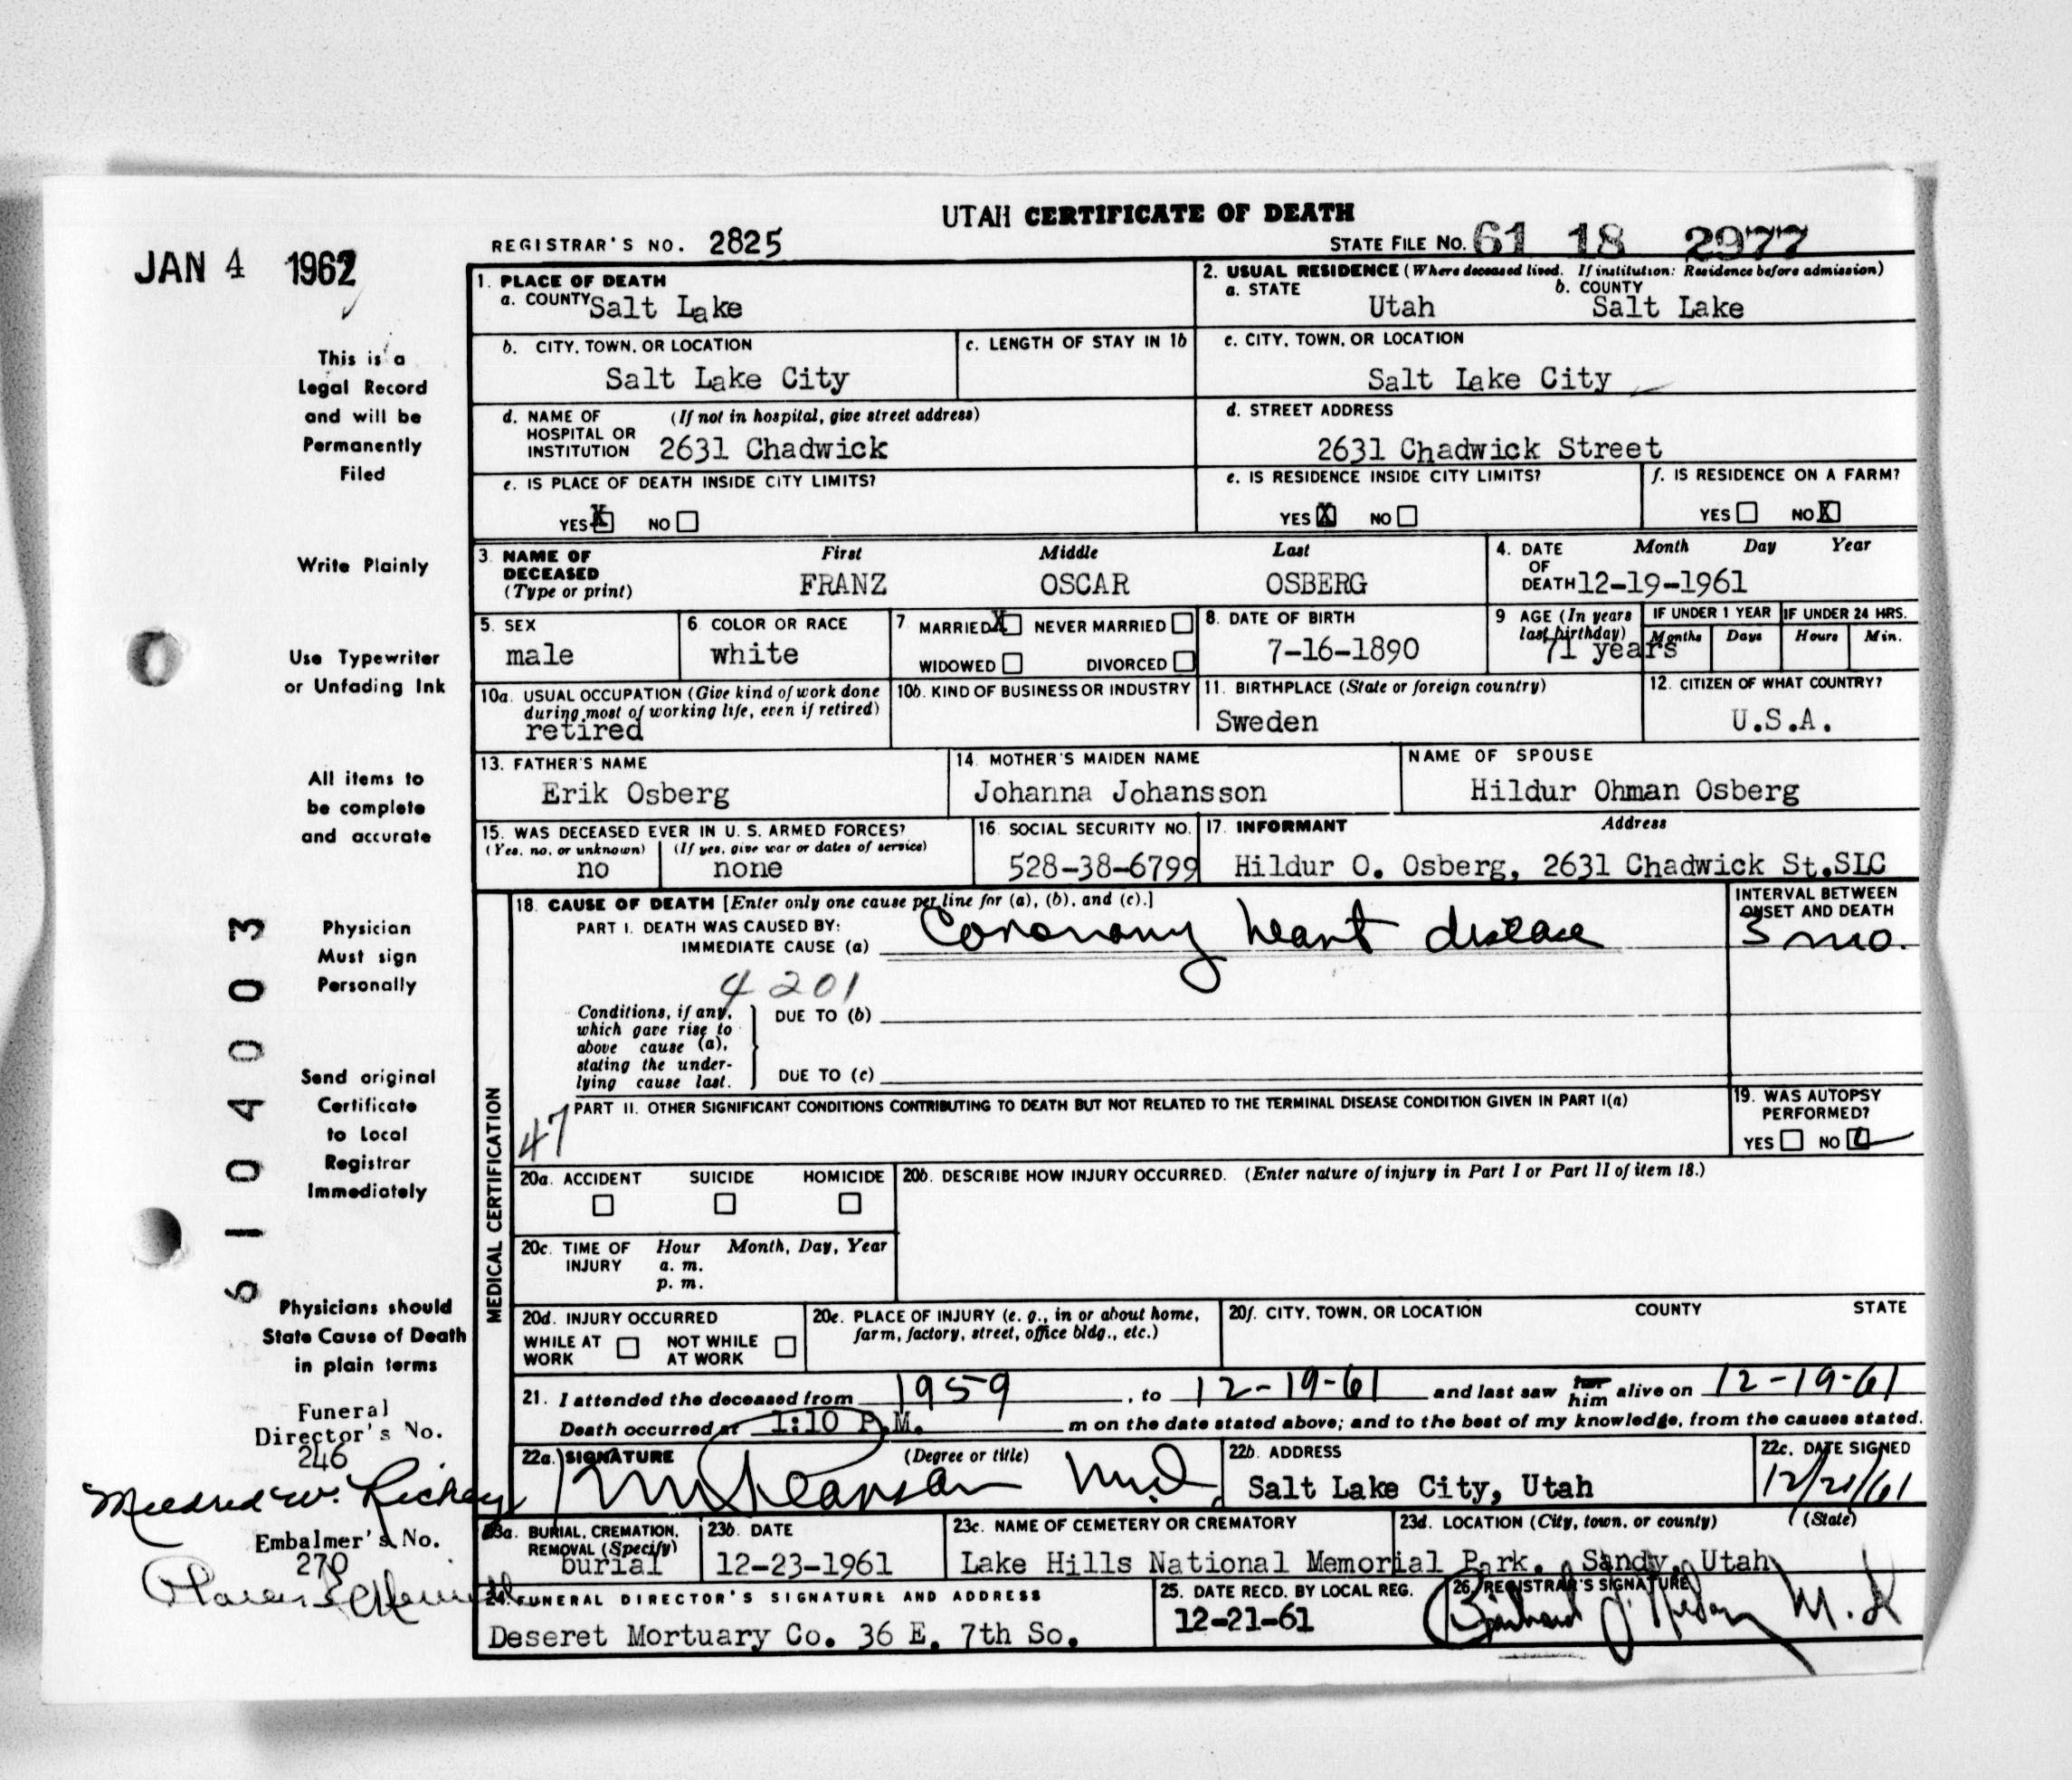 UTAH CERTIFICATE OF DEATH
JAN 4 1962
REGISTRAR'S NO. 2825
STATE FILE NO. 61 18 2977
This is a
Legal Record
and will be
Permanently
Filed
Write Plainly
Use Typewriter
or Unfading Ink
All items to
be complete
and accurate
Physician
Must sign
Personally
Send original
Certificate
to Local
Registrar
Immediately
Physicians should
State Cause of Death
in plain terms
6104003
Funeral
Director's No.
246
Mildred W. Richey
Embalmer's No.
270
1. PLACE OF DEATH
a. COUNTY Salt Lake
2. USUAL RESIDENCE (Where deceased lived. If institution: Residence before admission)
a. STATE Utah b. COUNTY Salt Lake
b. CITY, TOWN, OR LOCATION
Salt Lake City
c. LENGTH OF STAY IN 1b
c. CITY, TOWN, OR LOCATION
Salt Lake City
d. NAME OF HOSPITAL OR INSTITUTION (If not in hospital, give street address)
2631 Chadwick
d. STREET ADDRESS
2631 Chadwick Street
e. IS PLACE OF DEATH INSIDE CITY LIMITS?
YES X NO
e. IS RESIDENCE INSIDE CITY LIMITS?
YES X NO
f. IS RESIDENCE ON A FARM?
YES NO X
3. NAME OF DECEASED (Type or print)
First Middle Last
FRANZ OSCAR OSBERG
4. DATE OF DEATH Month Day Year
12-19-1961
5. SEX
male
6. COLOR OR RACE
white
7. MARRIED X NEVER MARRIED
WIDOWED DIVORCED
8. DATE OF BIRTH
7-16-1890
9 AGE (In years last birthday)
71 years
IF UNDER 1 YEAR
Months Days
IF UNDER 24 HRS.
Hours Min.
10a. USUAL OCCUPATION (Give kind of work done during most of working life, even if retired)
retired
10b. KIND OF BUSINESS OR INDUSTRY
11. BIRTHPLACE (State or foreign country)
Sweden
12. CITIZEN OF WHAT COUNTRY?
U.S.A.
13. FATHER'S NAME
Erik Osberg
14. MOTHER'S MAIDEN NAME
Johanna Johansson
NAME OF SPOUSE
Hildur Ohman Osberg
15. WAS DECEASED EVER IN U. S. ARMED FORCES?
(Yes, no, or unknown) (If yes, give war or dates of service)
no none
16. SOCIAL SECURITY NO.
528-38-6799
17. INFORMANT Address
Hildur O. Osberg, 2631 Chadwick St.SLC
MEDICAL CERTIFICATION
18. CAUSE OF DEATH [Enter only one cause per line for (a), (b), and (c).]
PART I. DEATH WAS CAUSED BY:
IMMEDIATE CAUSE (a) Coronary heart disease
INTERVAL BETWEEN ONSET AND DEATH
3 mo.
4201
Conditions, if any,
which gave rise to
above cause (a),
stating the under-
lying cause last.
DUE TO (b)
DUE TO (c)
PART II. OTHER SIGNIFICANT CONDITIONS CONTRIBUTING TO DEATH BUT NOT RELATED TO THE TERMINAL DISEASE CONDITION GIVEN IN PART I(a)
47
19. WAS AUTOPSY PERFORMED?
YES NO
20a. ACCIDENT SUICIDE HOMICIDE
20b. DESCRIBE HOW INJURY OCCURRED. (Enter nature of injury in Part I or Part II of item 18.)
20c. TIME OF INJURY Hour Month, Day, Year
a. m.
p. m.
20d. INJURY OCCURRED
WHILE AT WORK NOT WHILE AT WORK
20e. PLACE OF INJURY (e. g., in or about home, farm, factory, street, office bldg., etc.)
20f. CITY, TOWN, OR LOCATION COUNTY STATE
21. I attended the deceased from 1959, to 12-19-61 and last saw her him alive on 12-19-61
Death occurred at 1:10 P.M. m on the date stated above; and to the best of my knowledge, from the causes stated.
22a. SIGNATURE (Degree or title)
Pearson M.D.
22b. ADDRESS
Salt Lake City, Utah
22c. DATE SIGNED
12/21/61
23a. BURIAL, CREMATION, REMOVAL (Specify)
burial
23b. DATE
12-23-1961
23c. NAME OF CEMETERY OR CREMATORY
23d. LOCATION (City, town, or county) (State)
Lake Hills National Memorial Park. Sandy, Utah
24. FUNERAL DIRECTOR'S SIGNATURE AND ADDRESS
Deseret Mortuary Co. 36 E. 7th So.
25. DATE RECD. BY LOCAL REG.
12-21-61
26. REGISTRAR'S SIGNATURE